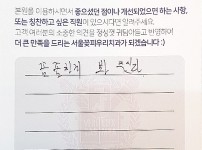 본원을 이용하시면서 좋으셨던 점이나 개선되었으면 하는 사항,
또는 칭찬하고 싶은 직원이 있으시다면 알려주세요.
고객 여러분의 소중한 의견을 정성껏 귀담아듣고 반영하여
더 큰 만족을 드리는 서울꽃피우리치과가 되겠습니다 :)
꼼꼼하게 봐